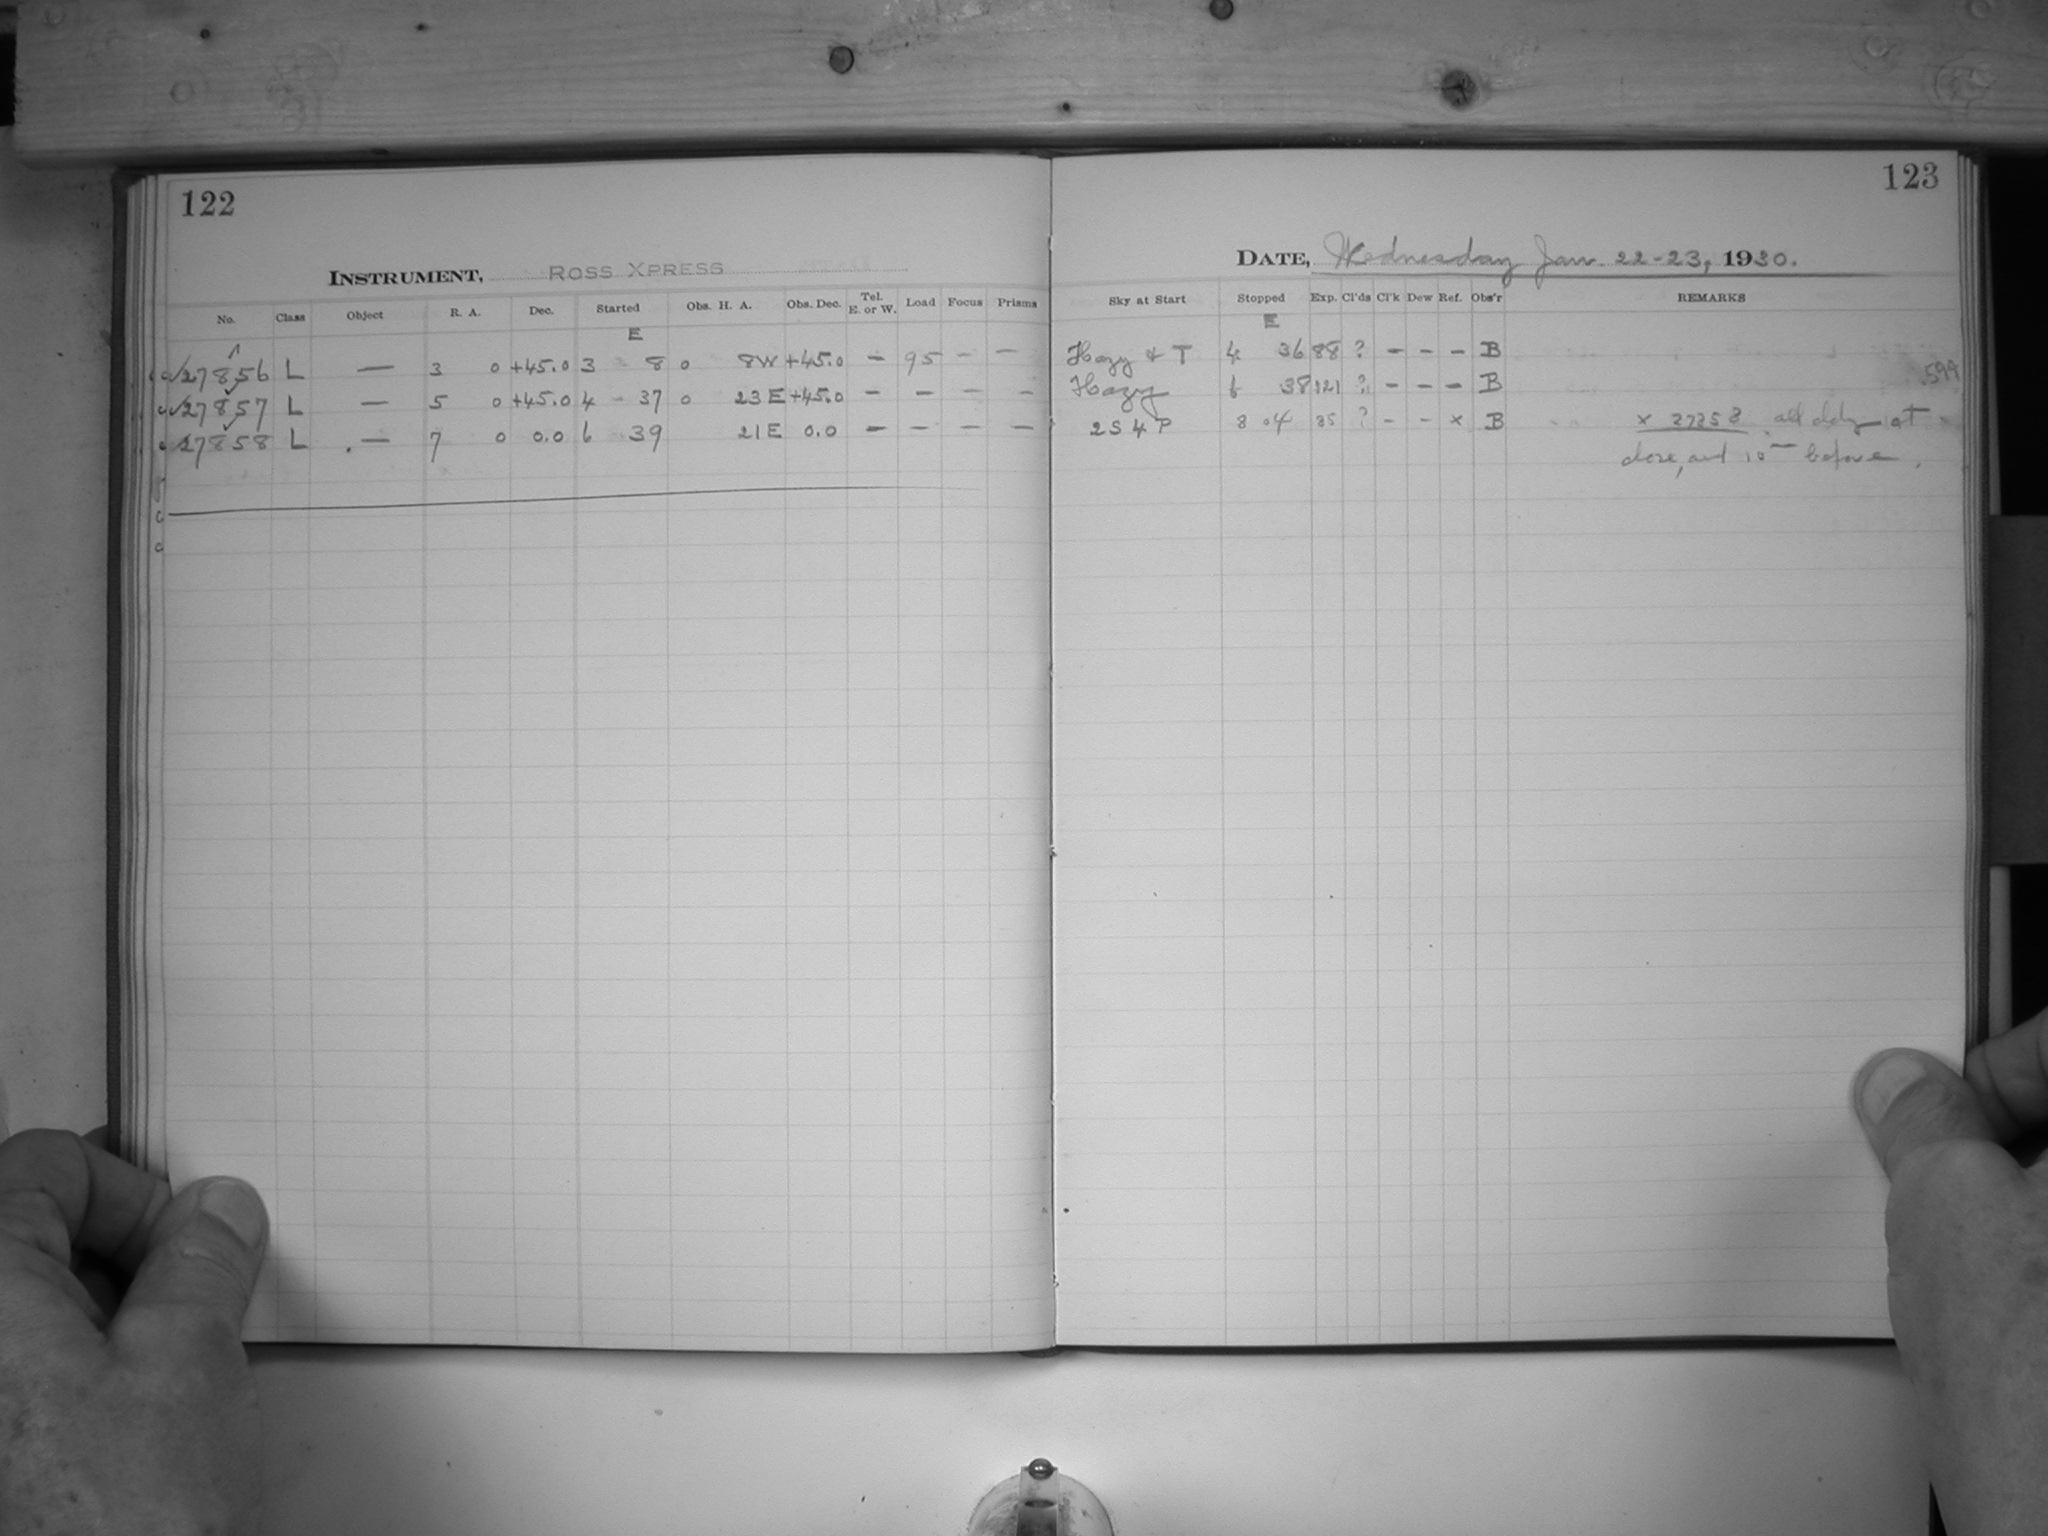 122
INSTRUMENT, ROSS XPRESS
No. Class Object R. A. Dec. Started Obs. H. A. Obs. Dec. Tel. E. or W. Load Focus Prisms
E
27856 L — 3 0 +45.0 3 8 0 8W +45.0 — 95 — —
27857 L — 5 0 +45.0 4 37 0 23E +45.0 — — — —
27858 L — 7 0 0.0 6 39 21E 0.0 — — — —
123
DATE, Wednesday Jan 22-23, 1930.
Sky at Start Stopped Exp. Cl'ds Cl'k Dew Ref. Obs'r REMARKS
E
Hazy & T 4 36 88 ? — — — B
Hazy 6 38 121 ? — — — B .599
2S4P 8 04 85 ? — — x B x 27858 at
close, and 10 before.